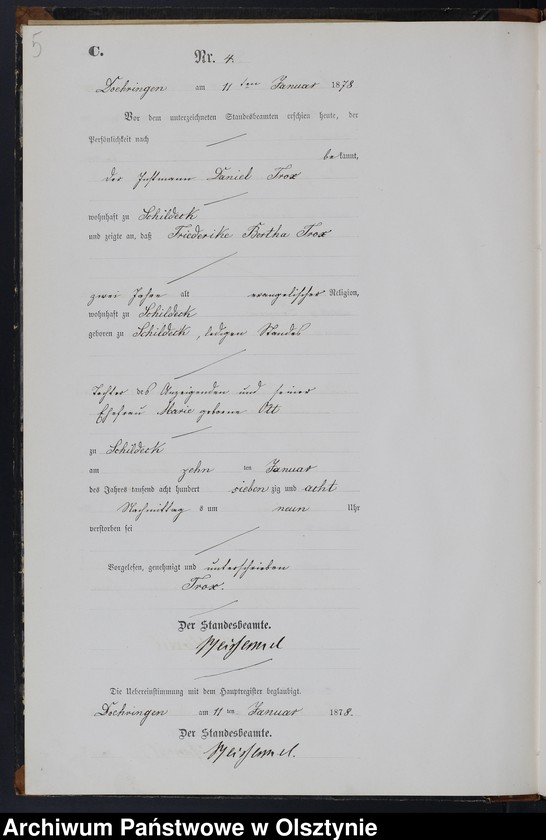 5
C.
Nr. 4.
Doehringen am 11 ten Januar 1878
Vor dem unterzeichneten Standesbeamten erschien heute, der
Persönlichkeit nach
be kannt,
der Instmann Daniel Trox
wohnhaft zu Schildeck
und zeigte an, daß Friederike Bertha Trox
zwei Jahre alt evangelischer Religion,
wohnhaft zu Schildeck
geboren zu Schildeck, ledigen Standes
Tochter des Anzeigenden und seiner
Ehefrau Marie geborene Ott
zu Schildeck
am zehn ten Januar
des Jahres tausend acht hundert sieben zig und acht
Nachmittag s um neun Uhr
verstorben sei
Vorgelesen, genehmigt und unterschrieben
Trox.
Der Standesbeamte.
Die Uebereinstimmung mit dem Hauptregister beglaubigt.
Doehringen am 11 ten Januar 1878.
Der Standesbeamte.
Archiwum Państwowe w Olsztynie